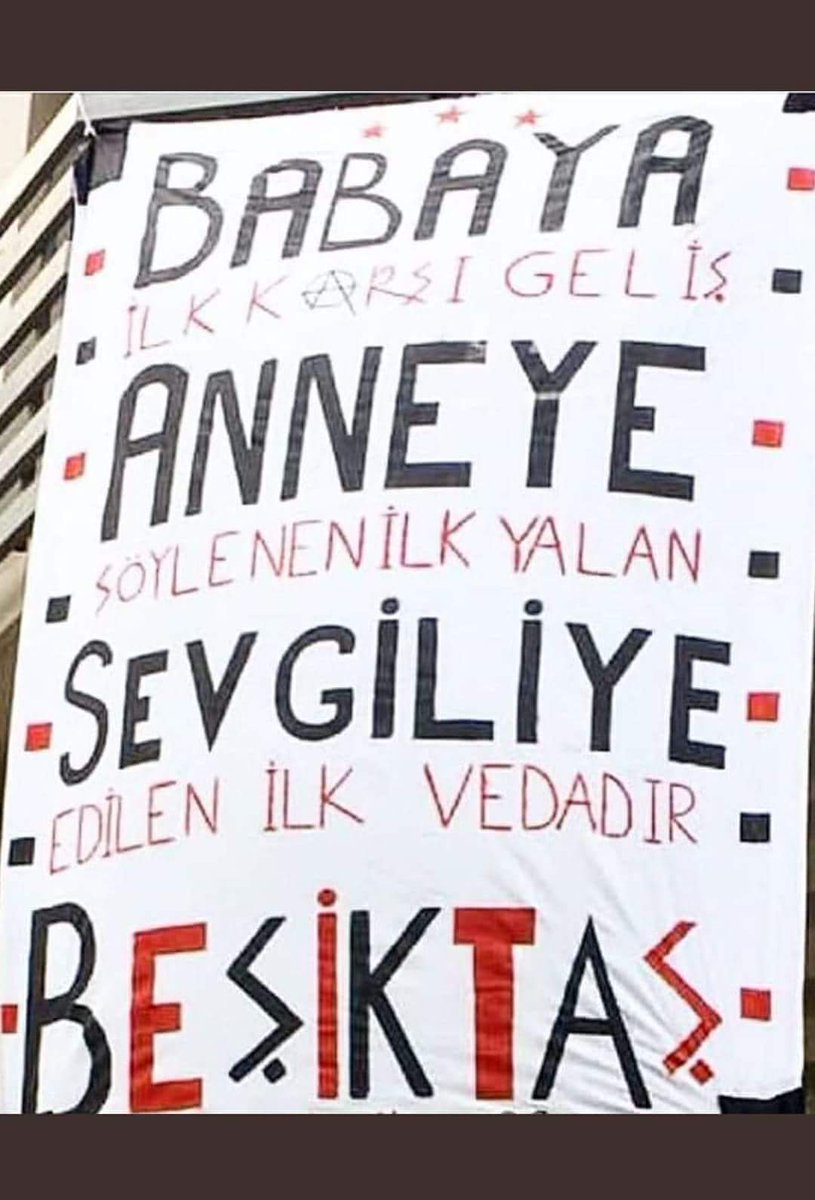 BABAYA
İLK KARŞI GELİŞ
ANNEYE
SÖYLENEN İLK YALAN
SEVGİLİYE
EDİLEN İLK VEDADIR
BEŞİKTAŞ